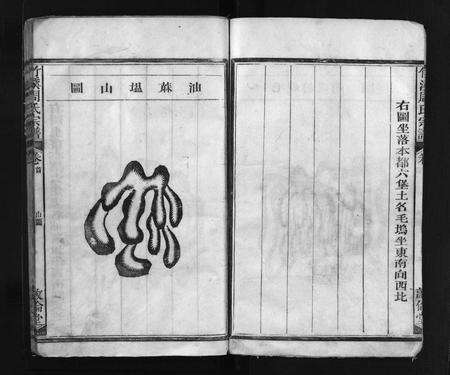 右圖坐落本都六堡土名毛塢坐東南向西北
油蔴塭山圖
竹溪周氏宗譜
卷首
山圖
敦倫堂